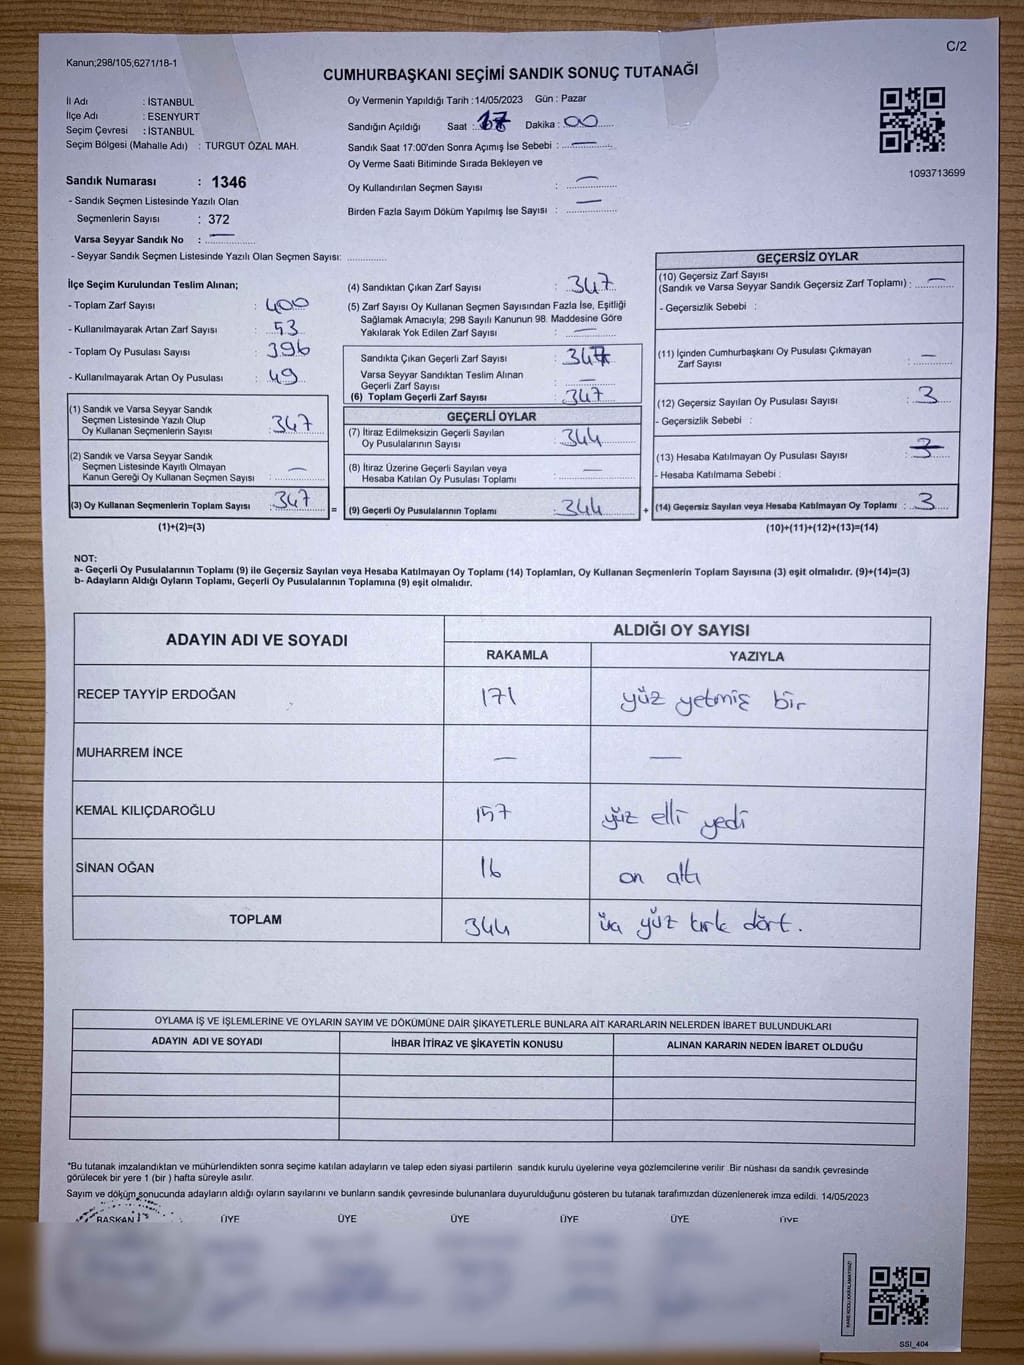 C/2
Kanun;298/105,6271/18-1
CUMHURBAŞKANI SEÇİMİ SANDIK SONUÇ TUTANAĞI
İl Adı : İSTANBUL
İlçe Adı : ESENYURT
Seçim Çevresi : İSTANBUL
Seçim Bölgesi (Mahalle Adı) : TURGUT ÖZAL MAH.
Sandık Numarası : 1346
- Sandık Seçmen Listesinde Yazılı Olan
Seçmenlerin Sayısı : 372
Varsa Seyyar Sandık No : —
- Seyyar Sandık Seçmen Listesinde Yazılı Olan Seçmen Sayısı:
Oy Vermenin Yapıldığı Tarih : 14/05/2023 Gün : Pazar
Sandığın Açıldığı Saat : 17 Dakika : 00
Sandık Saat 17:00'den Sonra Açımış İse Sebebi : —
Oy Verme Saati Bitiminde Sırada Bekleyen ve
Oy Kullandırılan Seçmen Sayısı : —
Birden Fazla Sayım Döküm Yapılmış İse Sayısı : —
1093713699
İlçe Seçim Kurulundan Teslim Alınan;
- Toplam Zarf Sayısı : 400
- Kullanılmayarak Artan Zarf Sayısı : 53
- Toplam Oy Pusulası Sayısı : 396
- Kullanılmayarak Artan Oy Pusulası : 49
(1) Sandık ve Varsa Seyyar Sandık
Seçmen Listesinde Yazılı Olup
Oy Kullanan Seçmenlerin Sayısı : 347
(2) Sandık ve Varsa Seyyar Sandık
Seçmen Listesinde Kayıtlı Olmayan
Kanun Gereği Oy Kullanan Seçmen Sayısı : —
(3) Oy Kullanan Seçmenlerin Toplam Sayısı : 347 =
(1)+(2)=(3)
(4) Sandıktan Çıkan Zarf Sayısı : 347
(5) Zarf Sayısı Oy Kullanan Seçmen Sayısından Fazla İse, Eşitliği
Sağlamak Amacıyla; 298 Sayılı Kanunun 98. Maddesine Göre
Yakılarak Yok Edilen Zarf Sayısı : —
Sandıkta Çıkan Geçerli Zarf Sayısı : 347
Varsa Seyyar Sandıktan Teslim Alınan
Geçerli Zarf Sayısı : —
(6) Toplam Geçerli Zarf Sayısı : 347
GEÇERLİ OYLAR
(7) İtiraz Edilmeksizin Geçerli Sayılan
Oy Pusulalarının Sayısı : 344
(8) İtiraz Üzerine Geçerli Sayılan veya
Hesaba Katılan Oy Pusulası Toplamı : —
(9) Geçerli Oy Pusulalarının Toplamı : 344 +
GEÇERSİZ OYLAR
(10) Geçersiz Zarf Sayısı
(Sandık ve Varsa Seyyar Sandık Geçersiz Zarf Toplamı) : —
- Geçersizlik Sebebi :
(11) İçinden Cumhurbaşkanı Oy Pusulası Çıkmayan
Zarf Sayısı : —
(12) Geçersiz Sayılan Oy Pusulası Sayısı : 3
- Geçersizlik Sebebi :
(13) Hesaba Katılmayan Oy Pusulası Sayısı : 3
- Hesaba Katılmama Sebebi :
(14) Geçersiz Sayılan veya Hesaba Katılmayan Oy Toplamı : 3
(10)+(11)+(12)+(13)=(14)
NOT:
a- Geçerli Oy Pusulalarının Toplamı (9) ile Geçersiz Sayılan veya Hesaba Katılmayan Oy Toplamı (14) Toplamları, Oy Kullanan Seçmenlerin Toplam Sayısına (3) eşit olmalıdır. (9)+(14)=(3)
b- Adayların Aldığı Oyların Toplamı, Geçerli Oy Pusulalarının Toplamına (9) eşit olmalıdır.
ADAYIN ADI VE SOYADI ALDIĞI OY SAYISI
RAKAMLA YAZIYLA
RECEP TAYYİP ERDOĞAN 171 yüz yetmiş bir
MUHARREM İNCE — —
KEMAL KILIÇDAROĞLU 157 yüz elli yedi
SİNAN OĞAN 16 on altı
TOPLAM 344 üç yüz kırk dört.
OYLAMA İŞ VE İŞLEMLERİNE VE OYLARIN SAYIM VE DÖKÜMÜNE DAİR ŞİKAYETLERLE BUNLARA AİT KARARLARIN NELERDEN İBARET BULUNDUKLARI
ADAYIN ADI VE SOYADI İHBAR İTİRAZ VE ŞİKAYETİN KONUSU ALINAN KARARIN NEDEN İBARET OLDUĞU
*Bu tutanak imzalandıktan ve mühürlendikten sonra seçime katılan adayların ve talep eden siyasi partilerin sandık kurulu üyelerine veya gözlemcilerine verilir .Bir nüshası da sandık çevresinde
görülecek bir yere 1 (bir ) hafta süreyle asılır.
Sayım ve döküm sonucunda adayların aldığı oyların sayılarını ve bunların sandık çevresinde bulunanlara duyurulduğunu gösteren bu tutanak tarafımızdan düzenlenerek imza edildi. 14/05/2023
BAŞKAN ÜYE ÜYE ÜYE ÜYE ÜYE ÜYE
SSI_404